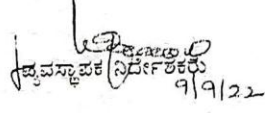 ವ್ಯವಸ್ಥಾಪಕ ನಿರ್ದೇಶಕರು
9/9/22